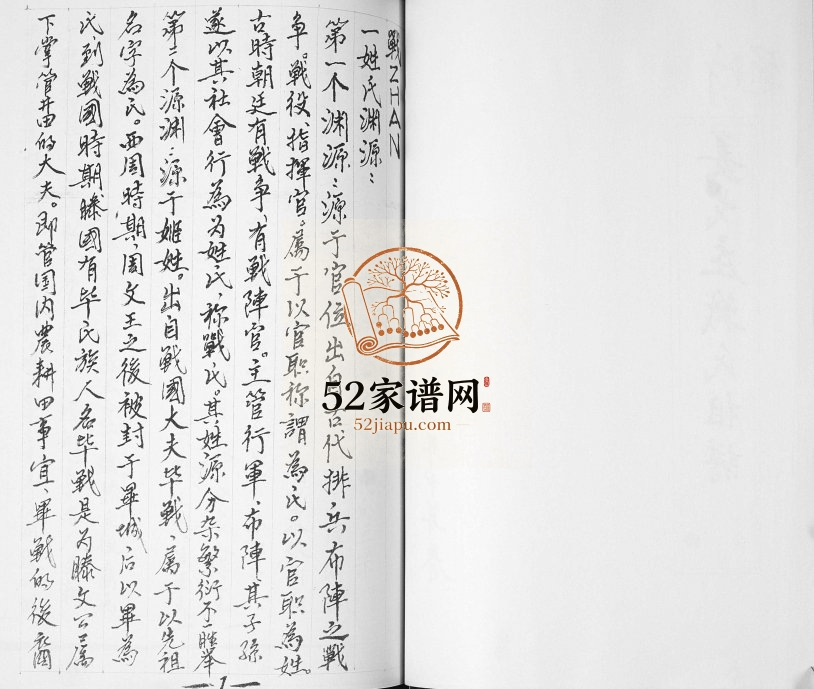 戰ZHAN
一姓氏渊源：
第一个渊源：源于官位出自古代排兵布陣之戰
争。戰役、指揮官，屬于以官职称謂為氏。以官职為姓。
古時朝廷有戰争、有戰陣官。主管行軍、布陣、其子孫
遂以其社會行為为姓氏，称戰氏。其姓源分杂繁衍不胜举
第二个源渊：源于姬姓。出自戰國大夫毕戰，属于以先祖
名字為氏。西周時期，周文王之後被封于畢城，后以畢為
氏，到戰國時期滕國有毕氏族人名毕戰是为滕文公属
下掌管井田的大夫。即管国内農耕田事宜、畢戰的後裔
1
52家谱网
52jiapu.com